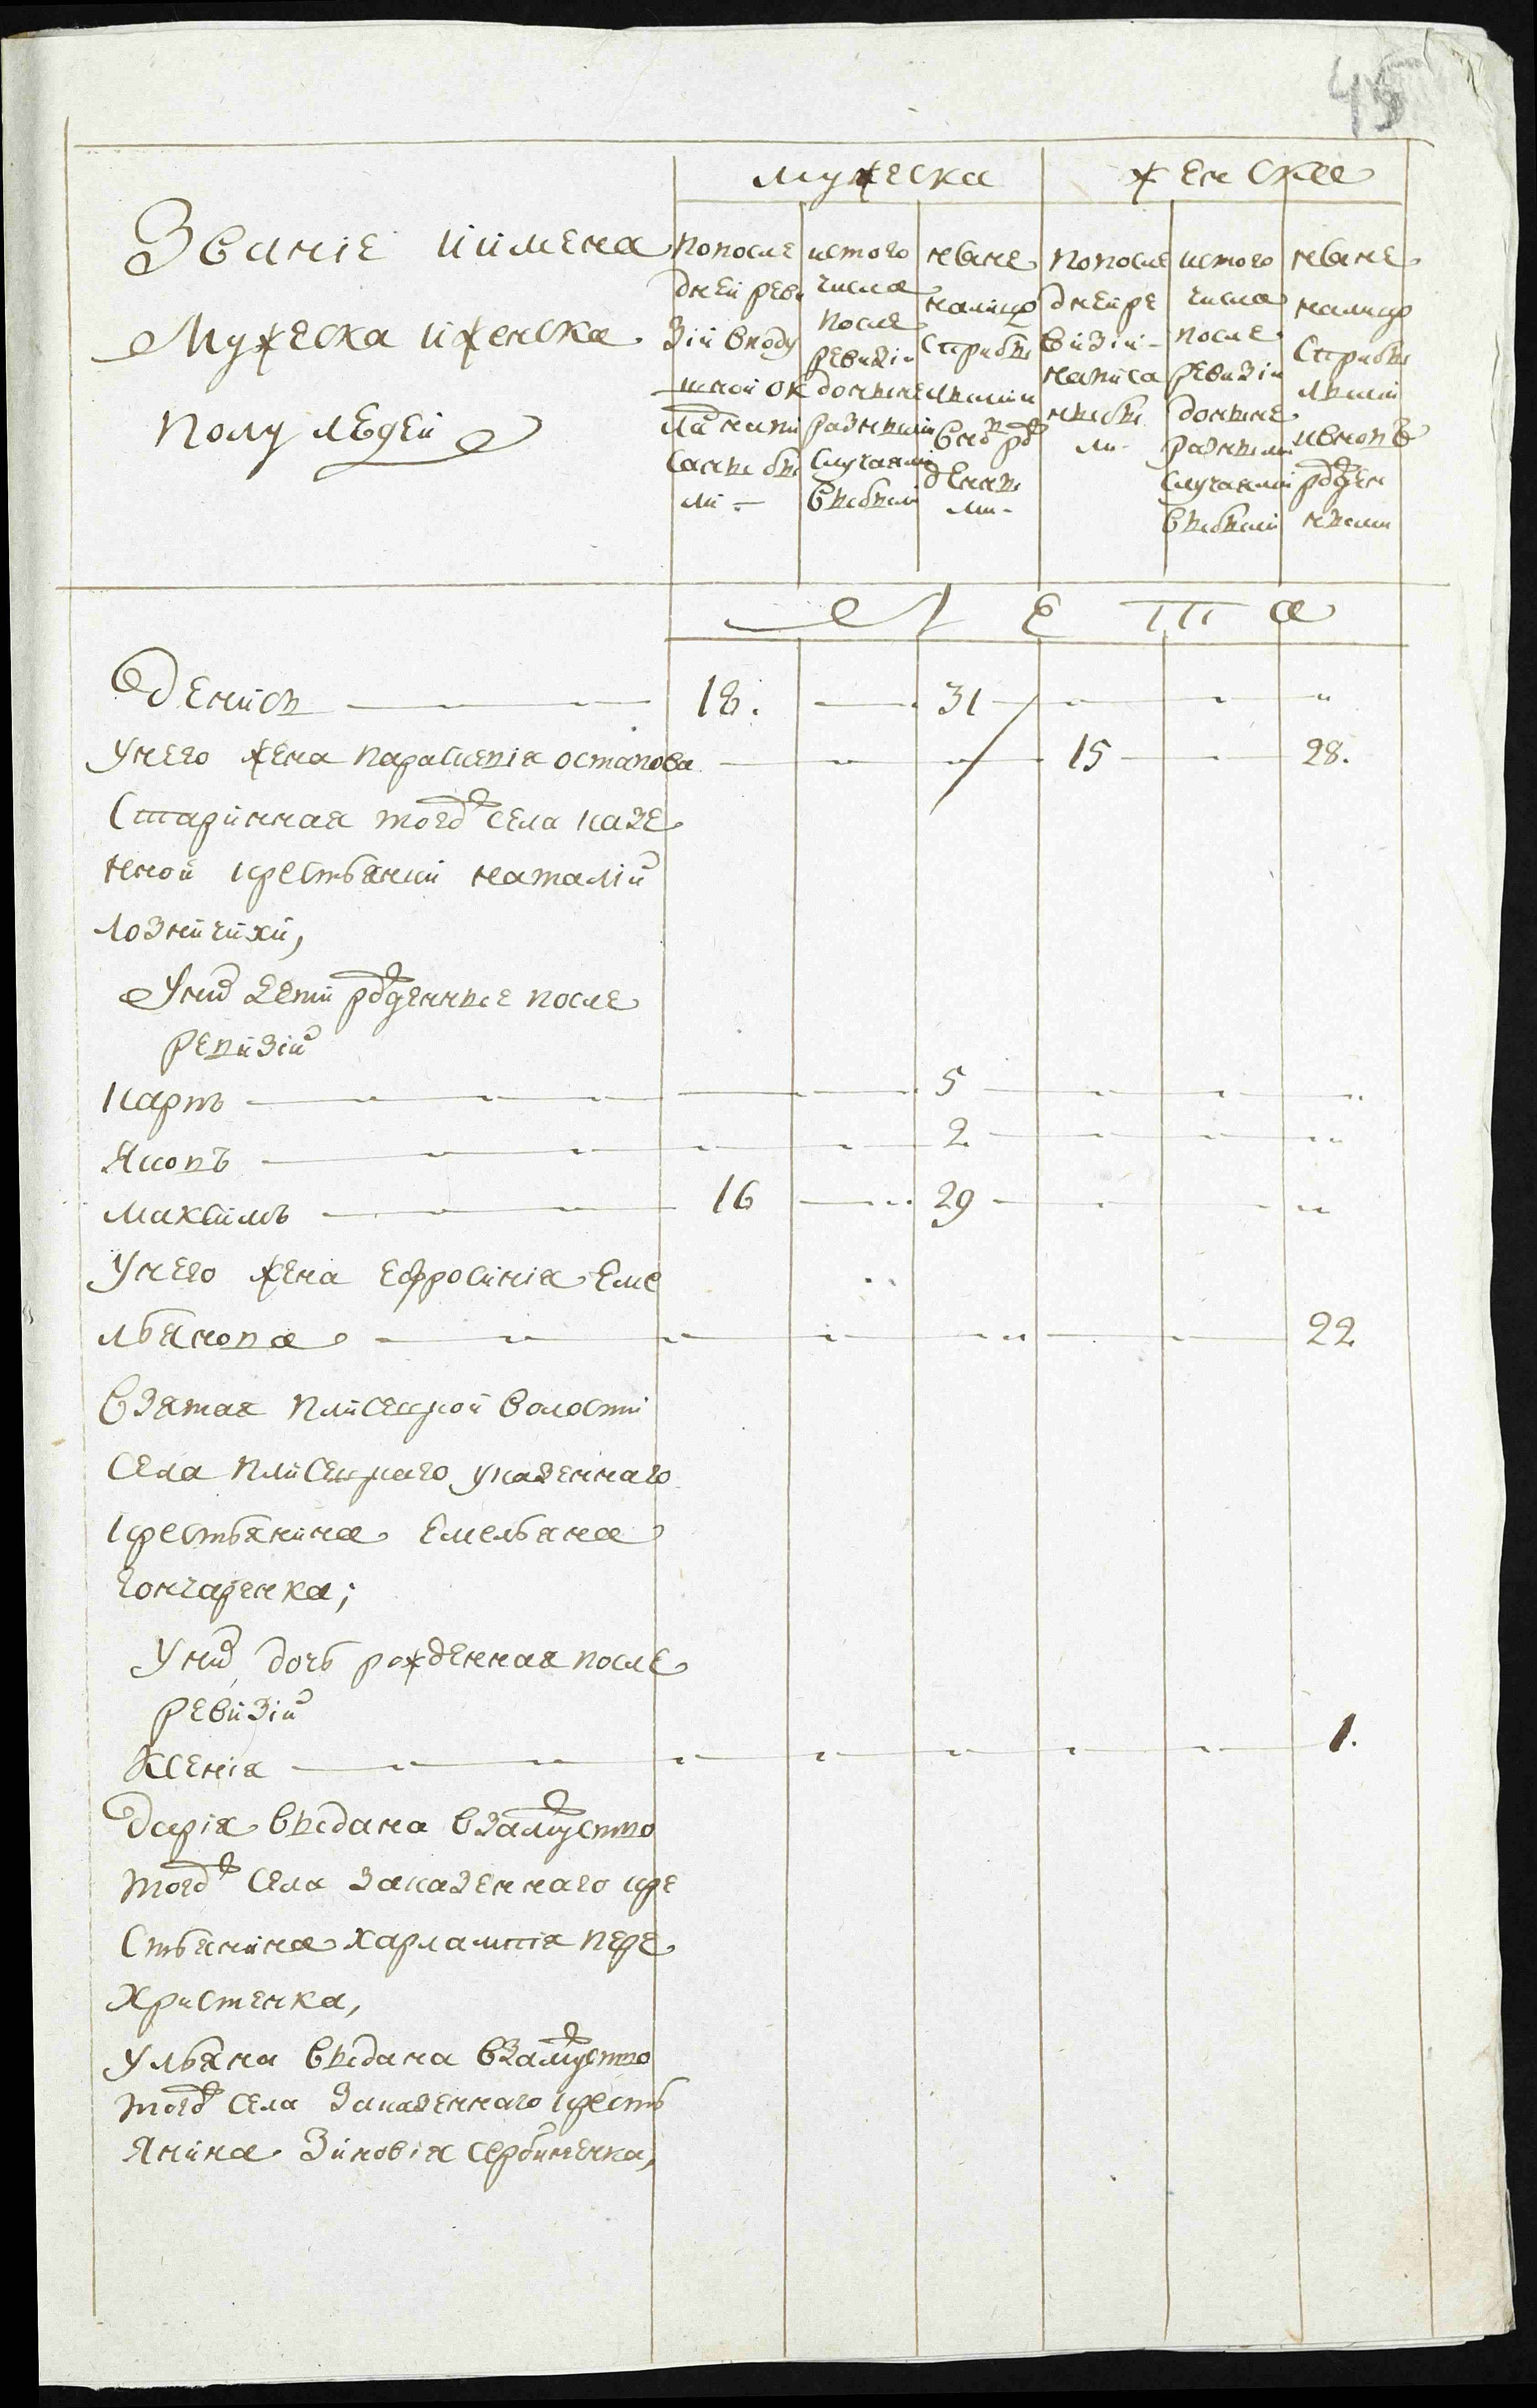 45
мужеска женска
Званіе и имена
Мужеска и женска
полу людей
по после
дней реви
зіи в поду
шной ок
ладъ напи
саны бы
ли
ис того
числа
после
ревизіи
до ныне
разными
случаями
выбыли
ныне
на лицо
с прибы
лыми
вновь рож
денны
ми
по после
дней ре
визіи
написа
ны бы
ли
ис того
числа
после
ревизіи
до ныне
разными
случаями
выбыли
ныне
на лицо
с прибы
лыми
и вновь
рожден
ными
Лета
Денисъ 18. 31
У него жена Парасковія Остапова 15 28.
Старинная того ж села казе
нной крестьянки Наталіи
Лозничихи,
У них дети рожденные после
ревизіи
Карпъ 5
Яковъ 2
Максимъ 16 29
У него жена Ефросинія Еме
льянова 22
Взятая Плисецкой волости
Села Плисецкаго у казеннаго
крестьянина Емельяна
Гончаренка;
У них дочь рожденная после
ревизіи
Ксенія 1.
Дарія выдана в замужство
того ж села за казеннаго кре
стьянина Харлампія Пере
христенка,
Ульяна выдана в замужство
того ж села за казеннаго кресть
янина Зиновія Сербиненка,